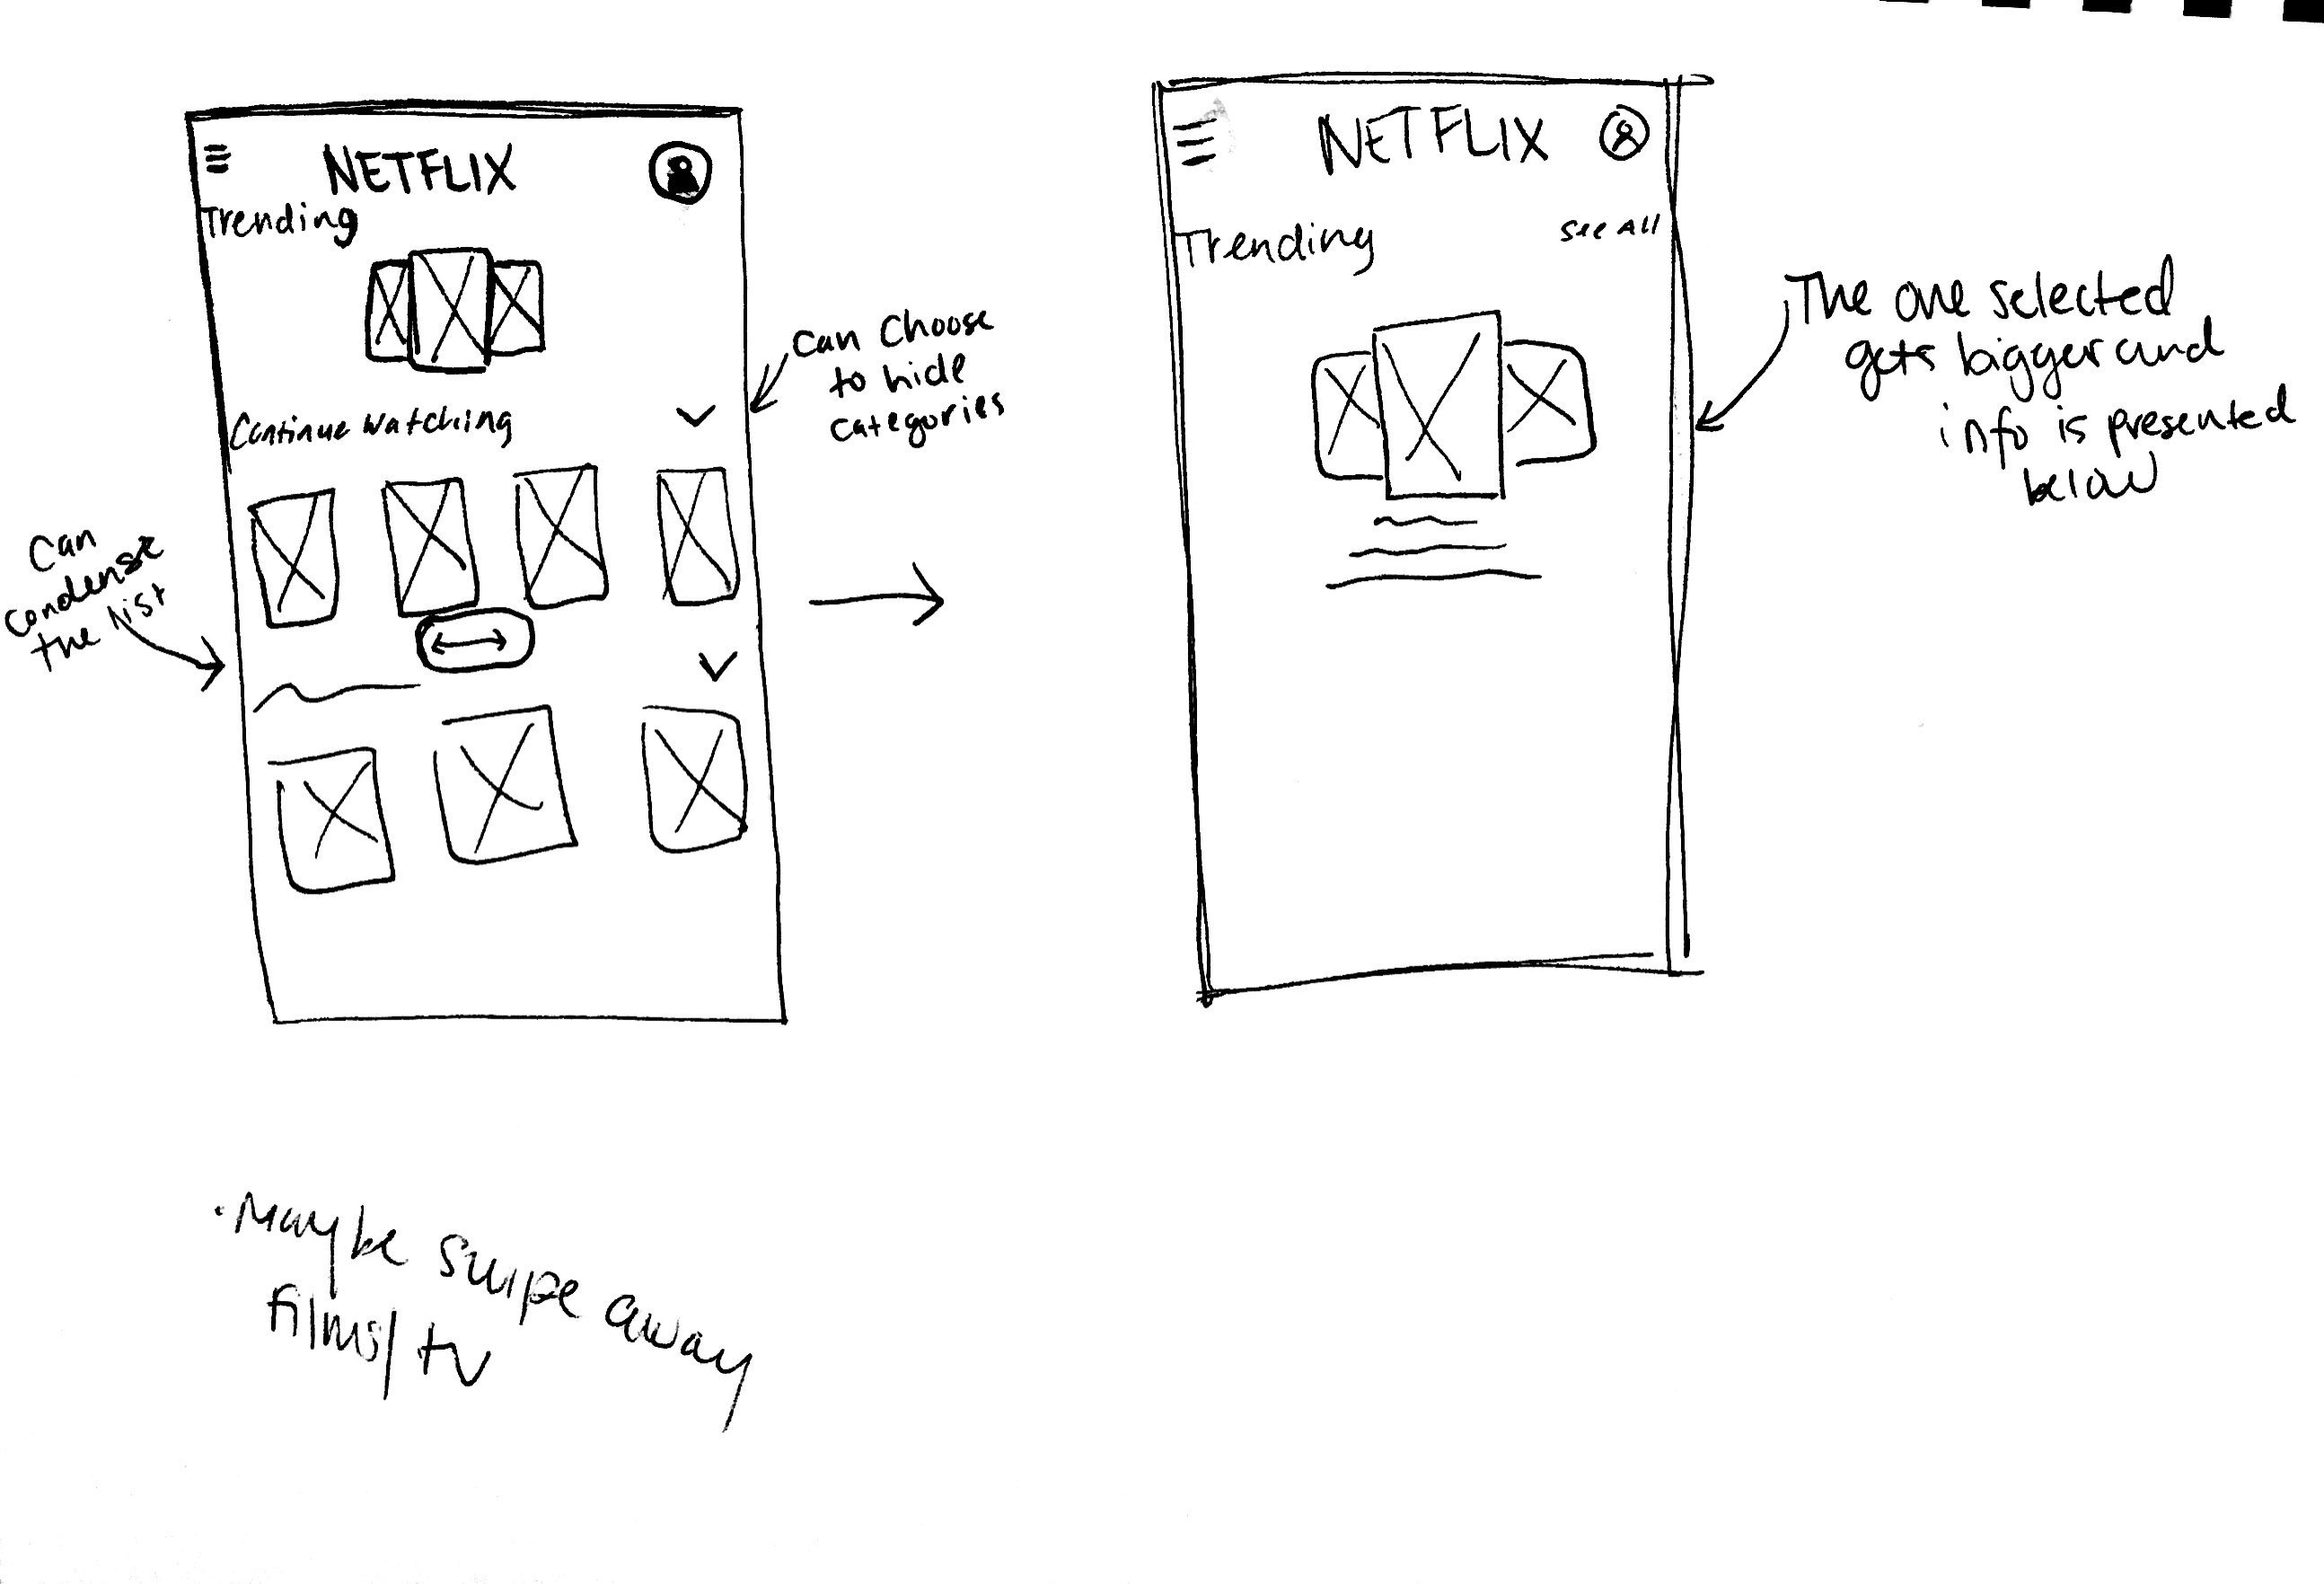 NETFLIX
Trending
Continue Watching
Can Choose
to hide
categories
Can
condense
the list
NETFLIX
Trending
See All
The one selected
gets bigger and
info is presented
below
· Maybe swipe away
films/tv